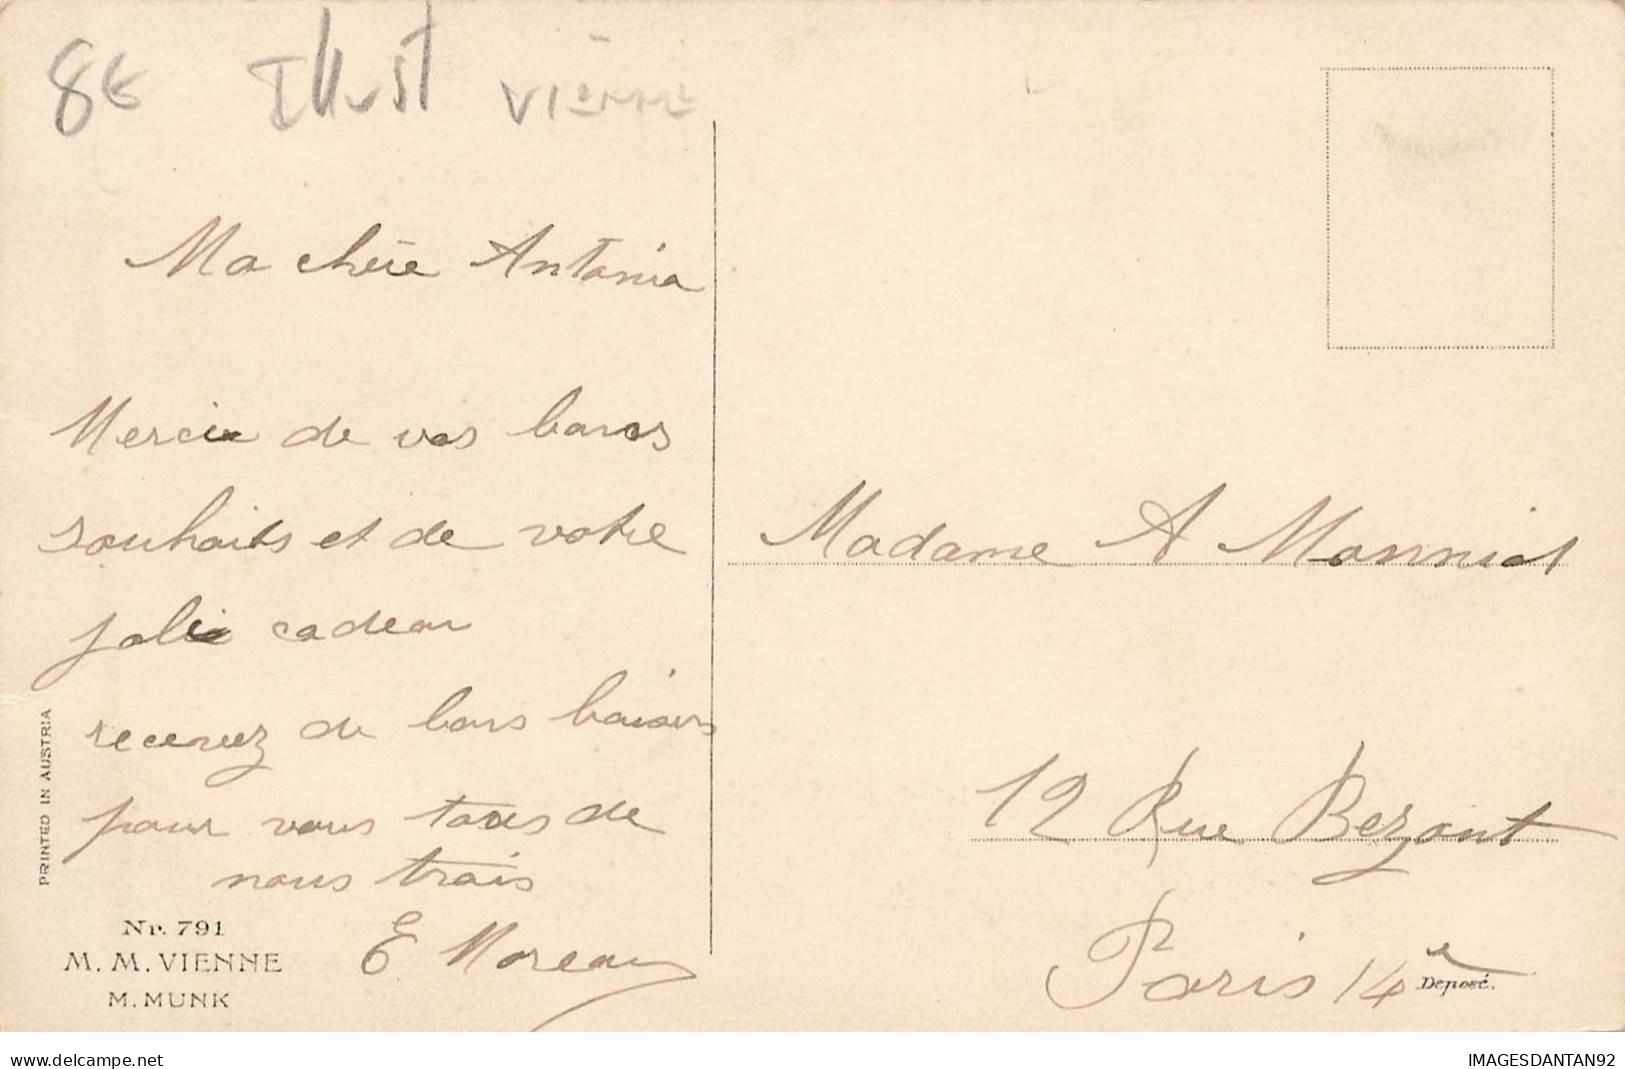 8€ Illust Vienne
Ma chère Antonia
Mercie de vos bons
souhaits et de votre
jolie cadeau
recevez de bons baisers
pour vous tous de
nous trois
E Moreau
PRINTED IN AUSTRIA
Nr. 791
M. M. VIENNE
M. MUNK
Madame A Monniot
12 Rue Bezout
Paris 14e
Déposé.
www.delcampe.net
IMAGESDANTAN92